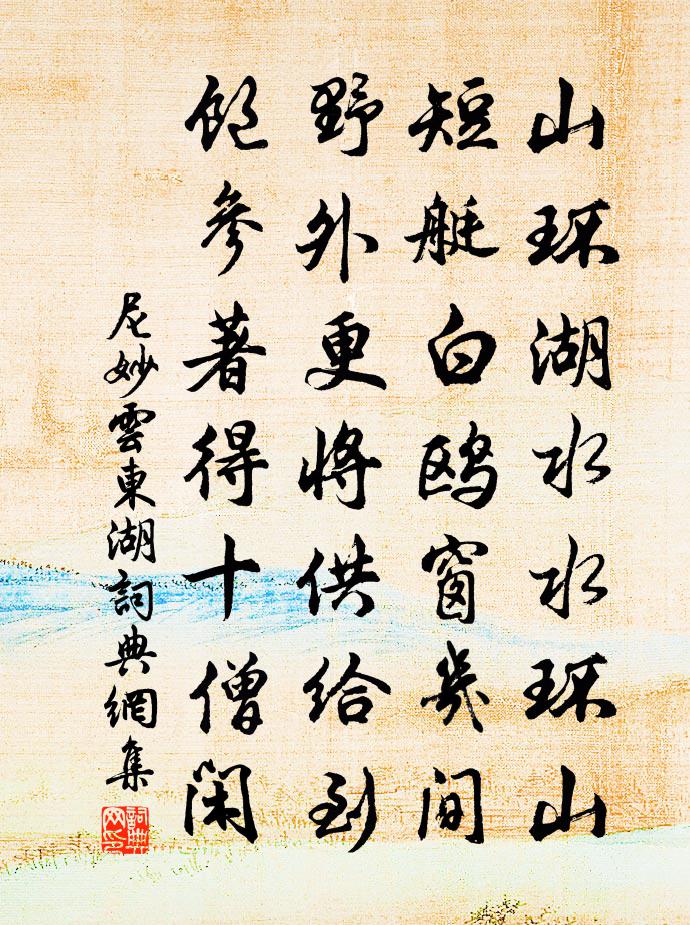 山环湖水水环山
短艇白鸥窗几间
野外更将供给到
饱参著得十僧闲
尼妙雲東湖詞典網集
詞典網印